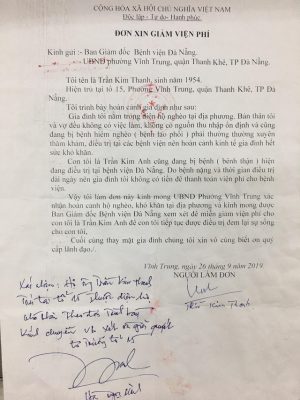 CỘNG HÒA XÃ HỘI CHỦ NGHĨA VIỆT NAM
Độc lập - Tự do- Hạnh phúc.
ĐƠN XIN GIẢM VIỆN PHÍ
Kính gửi : - Ban Giám đốc Bệnh viện Đà Nẵng.
- UBND phường Vĩnh Trung, quận Thanh Khê, TP Đà Nẵng.
Tôi tên là Trần Kim Thanh, sinh năm 1954.
Hiện trú tại tổ 15, Phường Vĩnh Trung, quận Thanh Khê, TP Đà Nẵng.
Tôi trình bày hoàn cảnh gia định như sau:
Gia đình tôi nằm trong diện hộ nghèo tại địa phương. Bản thân tôi
và vợ đều không có việc làm, không có nguồn thu nhập ổn định và cùng
đang bị bệnh hiểm nghèo ( bệnh táo phổi ) phải thường xuyên
thăm khám, điều trị tại các bệnh viện nên hoàn cảnh kinh tế gia đình hết
sức khó khăn.
Con tôi là Trần Kim Anh cũng đang bị bệnh ( bênh thận ) hiện
đang điều trị tại bệnh viện Đà Nẵng. Do bệnh nặng và thời gian điều trị
dài ngày nên gia đình tôi không có tiền để thanh toán viện phí cho bệnh
viện.
Vậy tôi làm đơn này kính mong UBND Phường Vĩnh Trung xác
nhận hoàn cảnh hộ nghèo, khó khăn tại địa phương và kính mong được
Ban Giám đốc Bệnh viện Đà Nẵng xem xét để miễn giảm viện phí cho
con tôi là Trần Kim Anh để con tôi tiếp tục được điều trị đem lại sự sống
cho con tôi.
Cuối cùng thay mặt gia đình chúng tôi xin vô cùng biết ơn quý
cấp lãnh đạo./.
Vĩnh Trung, ngày 26 tháng 9 năm 2019
NGƯỜI LÀM ĐƠN
Trần Kim Thanh
Hộ ông Trần Kim Thanh
tổ 15